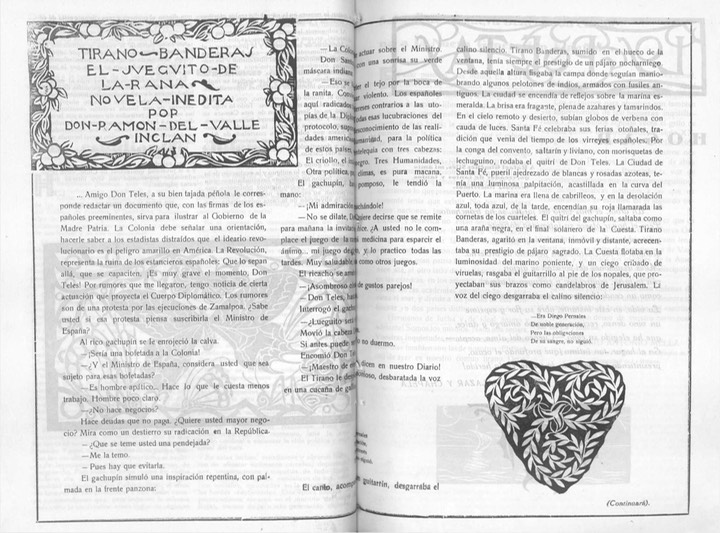 TIRANO BANDERAS
EL JVEGVITO DE
LA RANA
NOVELA INEDITA
POR
DON RAMON DEL VALLE
INCLAN
... Amigo Don Teles, a su bien tajada péñola le corres-
ponde redactar un documento que, con las firmas de los es-
pañoles preeminentes, sirva para ilustrar al Gobierno de la
Madre Patria. La Colonia debe señalar una orientación,
hacerle saber a los estadistas distraídos que el ideario revo-
lucionario es el peligro amarillo en América. La Revolución,
representa la ruina de los estancieros españoles: Que lo sepan
allá, que se capaciten. ¡Es muy grave el momento, Don
Teles! Por rumores que me llegaron, tengo noticia de cierta
actuación que proyecta el Cuerpo Diplomático. Los rumores
son de una protesta por las ejecuciones de Zamalpoa. ¿Sabe
usted si esa protesta piensa suscribirla el Ministro de
España?
Al rico gachupín se le enrojeció la calva.
—¡Sería una bofetada a la Colonia!
—¿Y el Ministro de España, considera usted que sea
sujeto para esas bofetadas?
—Es hombre apático... Hace lo que le cuesta menos
trabajo. Hombre poco claro.
—¿No hace negocios?
Hace deudas que no paga. ¿Quiere usted mayor nego-
cio? Mira como un destierro su radicación en la República.
—¿Que se teme usted una pendejada?
—Me la temo.
—Pues hay que evitarla.
El gachupín simuló una inspiración repentina, con pal-
mada en la frente panzona:
—La Colo
Don
máscara indian
—Eso
la ranita.
aquí radicados
pias de la
protocolo,
dades america
de estos países
El criollo, el
Otra política
El gachupín, la
mano:
—¡Mi admiración
—No se dilate, D
para mañana la invita
place el juego de la
ánimo... mi juego de
tardes. Muy saludable
El ricacho se
—¡Asombroso
—Don Teles,
Interrogó el gachu
—¿Jueguito
Movió la cabeza
Si antes puede
Encomió Don Te
—¡Maestro de
El Tirano le
en una cucaña de
actuar sobre el Ministro
con una sonrisa su verde
er el tejo por la boca de
violento. Los españoles
contrarios a las uto-
esas lucubraciones del
conocimiento de las reali-
para la política
con tres cabezas:
Tres Humanidades,
climas, es pura macana.
pomposo, le tendió la
echándole!
Quiere decirse que se remite
¿A usted no le com-
medicina para esparcir el
y lo practico todas las
como otros juegos.
de gustos parejos!
no duermo.
dicen en nuestro Diario!
desbaratada la voz
El cariño,
guitarrín, desgarraba el
calino silencio. Tirano Banderas, sumido en el hueco de la
ventana, tenía siempre el prestigio de un pájaro nocharniego.
Desde aquella altura fisgaba la campa donde seguían manio-
brando algunos pelotones de indios, armados con fusiles an-
tiguos. La ciudad se encendía de reflejos sobre la marina es-
meralda. La brisa era fragante, plena de azahares y tamarindos.
En el cielo remoto y desierto, subían globos de verbena con
cauda de luces. Santa Fé celebraba sus ferias otoñales, tra-
dición que venía del tiempo de los virreyes españoles. Por
la conga del convento, saltarín y liviano, con morisquetas de
lechuguino, rodaba el quitrí de Don Teles. La Ciudad de
Santa Fé, pueril ajedrezado de blancas y rosadas azoteas, te-
nía una luminosa palpitación, acastillada en la curva del
Puerto. La marina era llena de cabrilleos, y en la desolación
azul, toda azul, de la tarde, encendían su roja llamarada las
cornetas de los cuarteles. El quitrí del gachupín, saltaba como
una araña negra, en el final solanero de la Cuesta. Tirano
Banderas, agaritó en la ventana, inmóvil y distante, acrecen-
taba su prestigio de pájaro sagrado. La Cuesta flotaba en la
luminosidad del marino poniente, y un ciego cribado de
viruelas, rasgaba el guitarrillo al pie de los nopales, que pro-
yectaban sus brazos como candelabros de Jerusalem. La
voz del ciego desgarraba el calino silencio:
—Era Diego Pernales
De noble generación,
Pero las obligaciones
De su sangre, no siguió.
(Continuará).